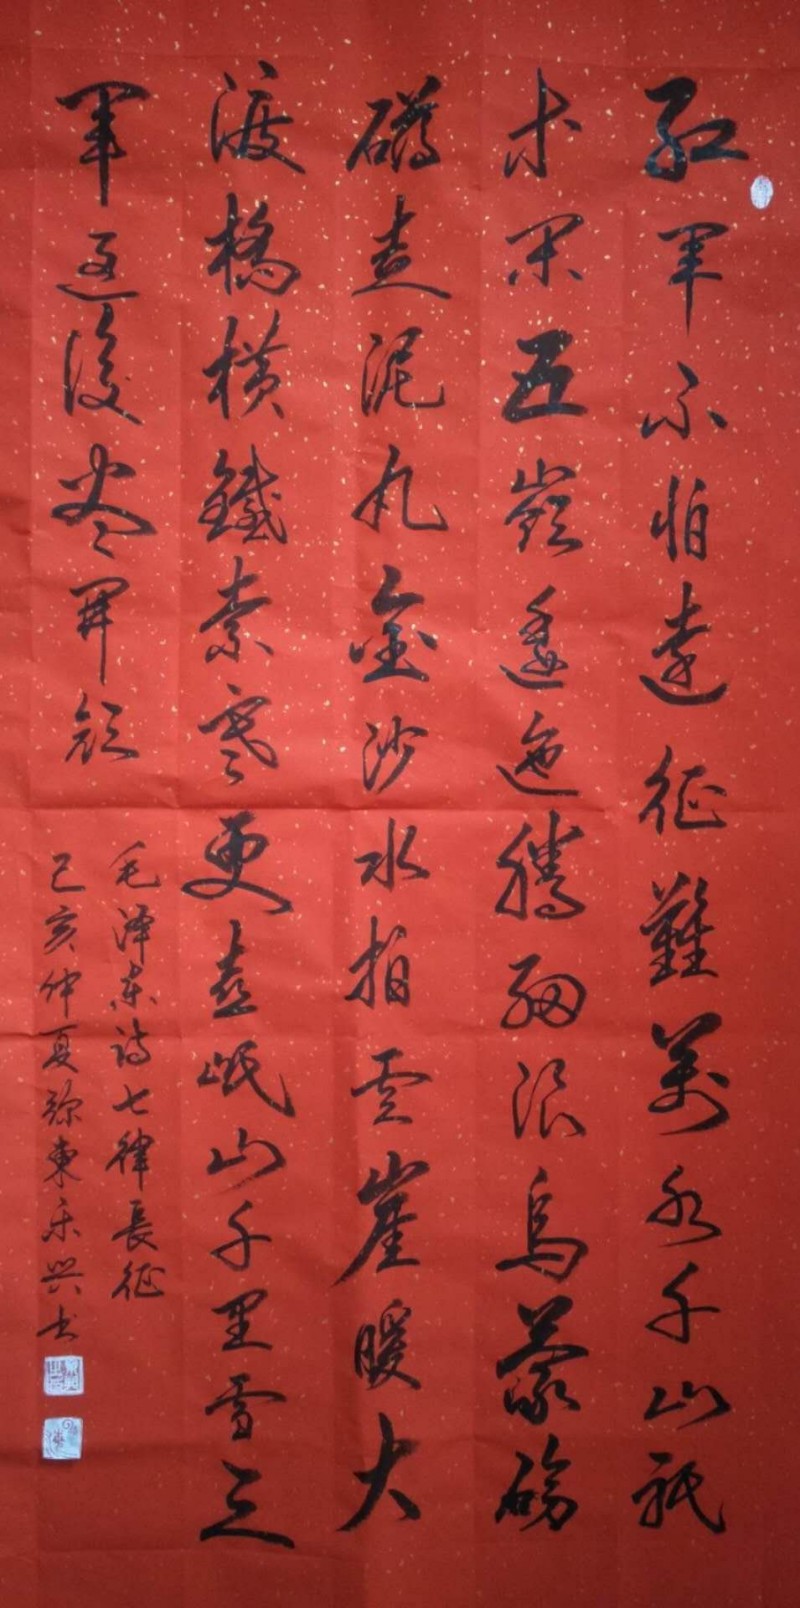 紅軍不怕遠征難萬水千山祇
等閑五嶺逶迤騰細浪烏蒙磅
礴走泥丸金沙水拍雲崖暖大
渡橋橫鐵索寒更喜岷山千里雪三
軍過後盡開顏
毛泽东诗七律長征
己亥仲夏東乐兴书